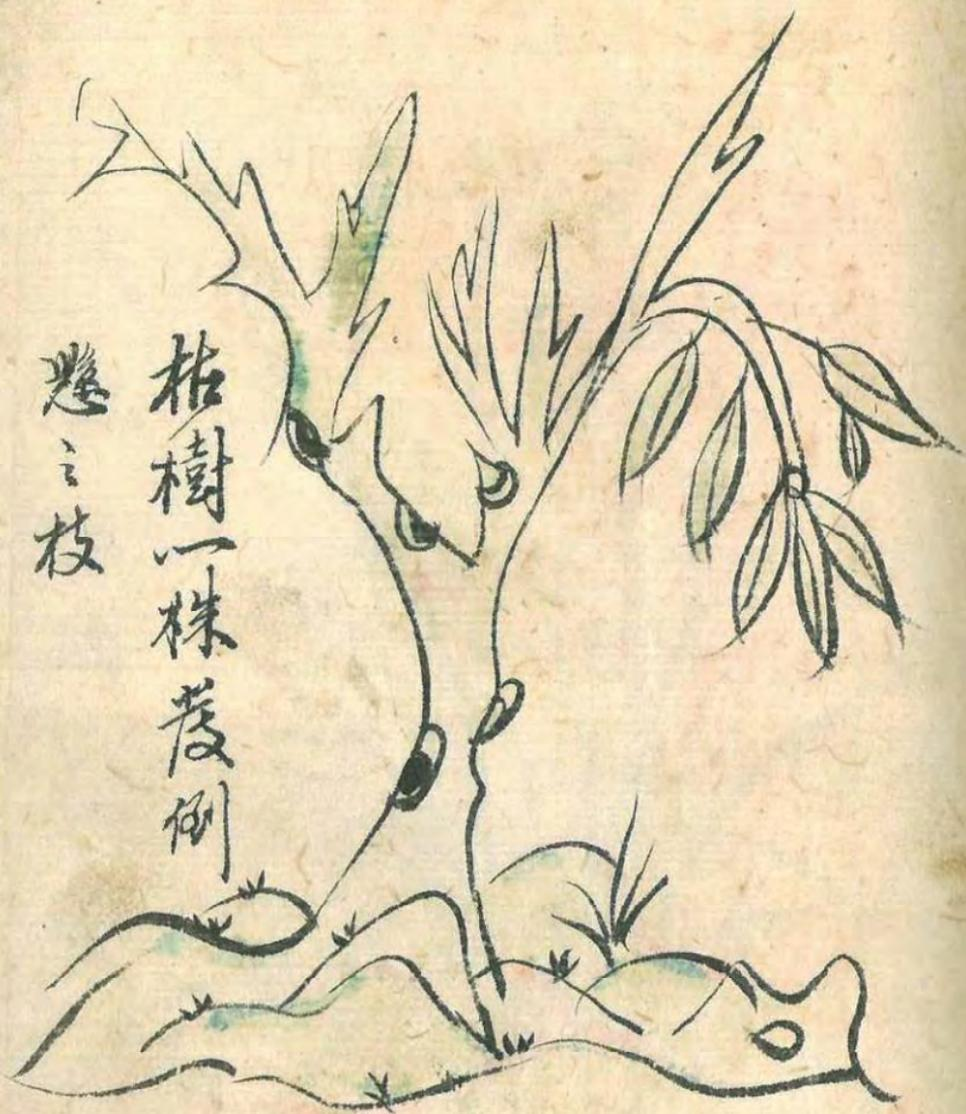 枯樹一株發倒
懸之枝